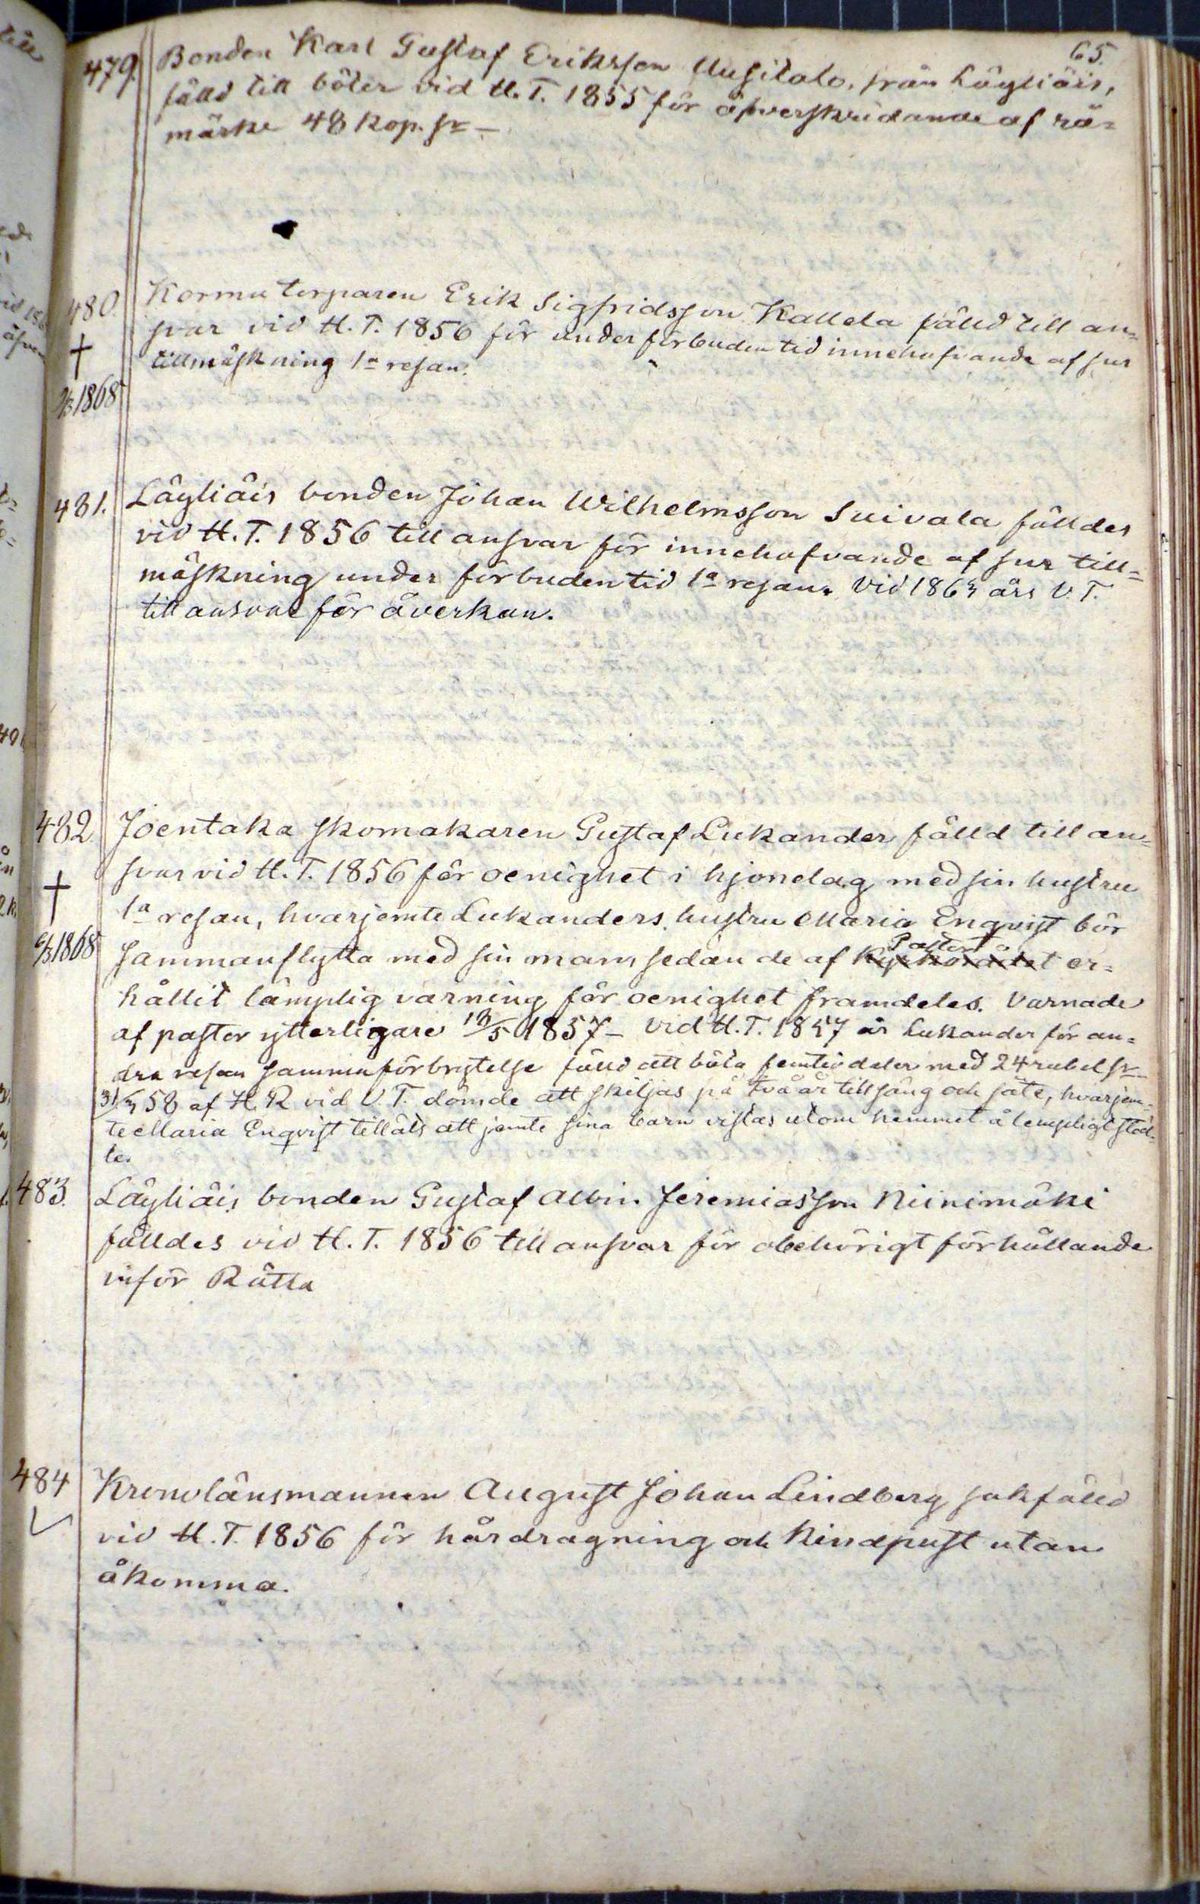 65.
479. Bonden Karl Gustaf Eriksson Uusitalo, från Läyliäis,
fälld till böter vid H.T. 1855 för öfverskridande af rå=
märke 48 kop. sr –
480. Kormu torparen Erik Sigfridsson Kallela fälld till an=
svar vid H.T. 1856 för under förbuden tid innehafvande af sur
† tillmäskning 1a resan.
1868
481. Läyliäis bonden Johan Wilhelmsson Suivala fälldes
vid H.T. 1856 till ansvar för innehafvande af sur till=
mäskning under förbuden tid 1a resan. Vid 1863 års V.T.
till ansvar för åverkan.
482 Joentaka skomakaren Gustaf Lukander fälld till an=
svar vid H.T. 1856 för oenighet i hjonelag med sin hustru
† 1a resan, hvarjemte Lukanders hustru Maria Enqvist bör
1868 sammanflytta med sin man, sedan de af Pastor er=
hållit lämplig varning för oenighet framdeles. Varnade
af pastor ytterligare 13/5 1857 – vid H.T. 1857 är Lukander för an=
dra resan samma förbrytelse fälld att böta femtio daler med 24 rubel sr –
31/3 58 af H.R vid V.T. dömde att skiljas på två år till säng och säte, hvarjem=
te Maria Enqvist tillåts att jemte sina barn vistas utom hemmet å lempligt stäl=
le.
483. Läyliäis bonden Gustaf Albin Jeremiasson Niinimäki
fälldes vid H.T. 1856 till ansvar för obehörigt förhållande
inför Rätta
484 Kronolänsmannen August Johan Lindberg sakfälld
vid H.T. 1856 för hårdragning och kindpust utan
åkomma.